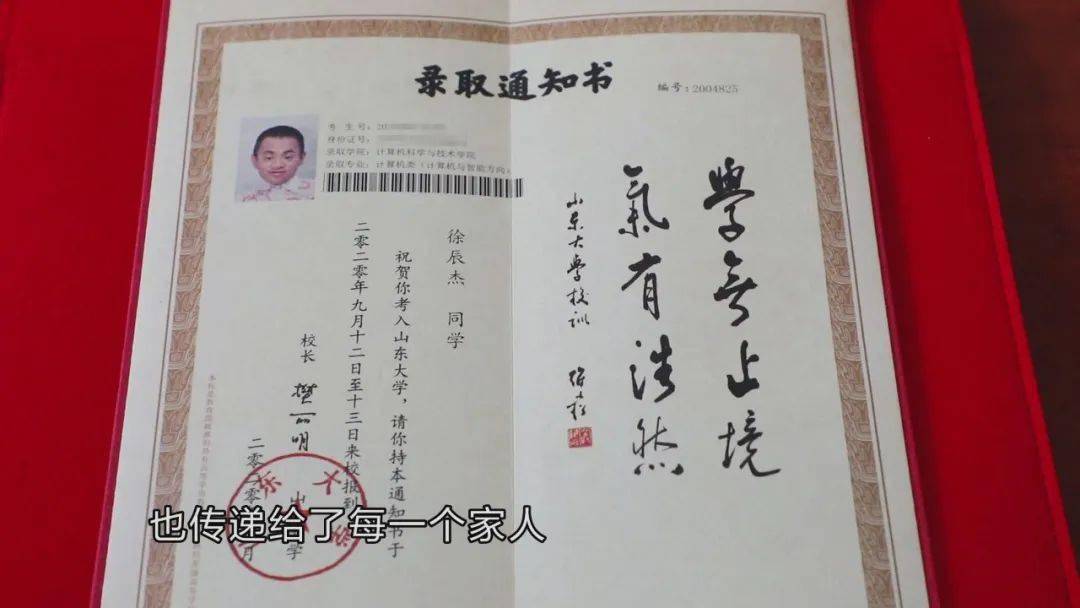 录取通知书
编号:2004825
考生号:20
身份证号:
录取学院:计算机科学与技术学院
录取专业:计算机类(计算机与智能方向)
徐辰杰 同学
祝贺你考入山东大学,请你持本通知书于
二零二零年九月十二日至十三日来校报到
校长 樊丽明
山东大学
二零二零
月
學無止境
氣有浩然
山东大学校训
也传递给了每一个家人